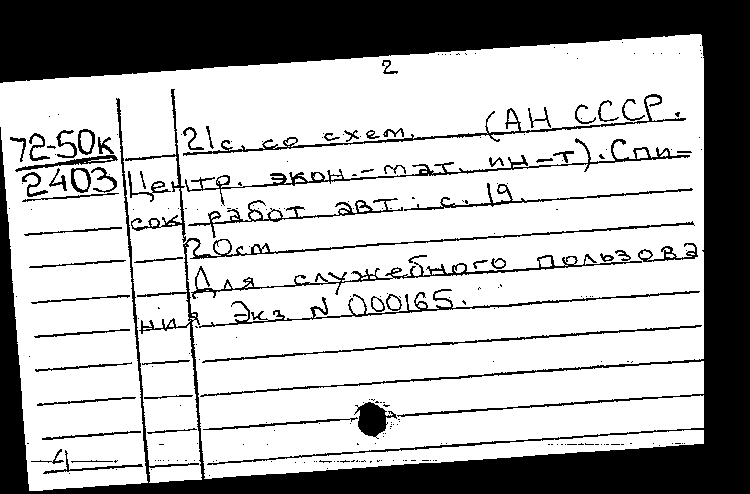 2
72-50к
2403
21с. со схем. (АН СССР.
Центр. экон.-мат. ин-т). Спи-
сок работ авт.: с. 19.
20см
Для служебного пользова
ния. Экз. N 000165.
4